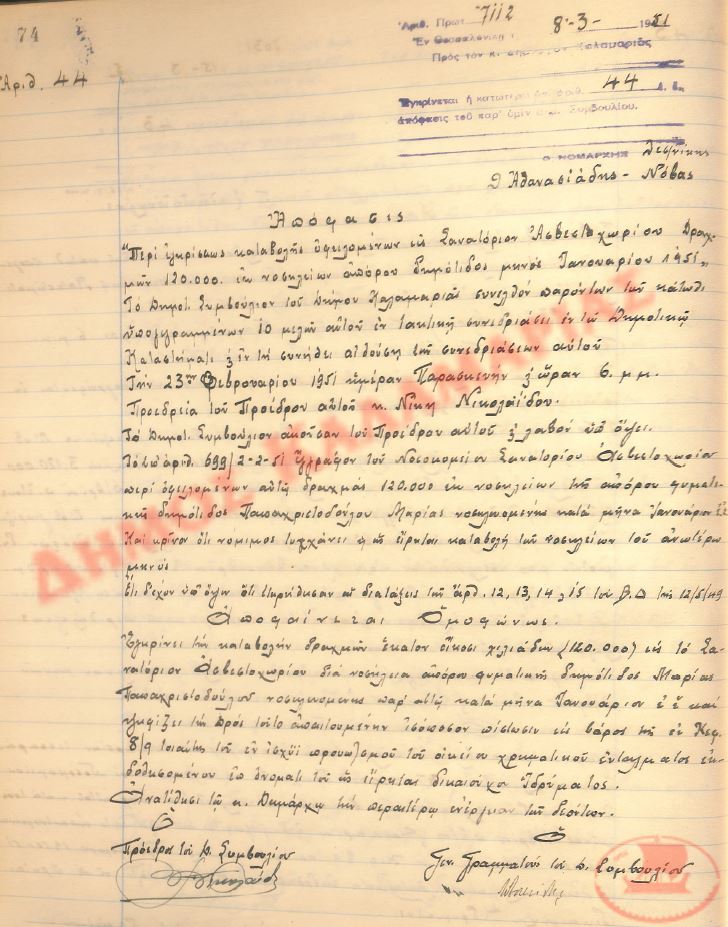 74
Ἀριθ. 44
Ἀριθ. Πρωτ. 7112
Ἐν Θεσσαλονίκῃ 8-3-1951
Πρὸς τὸν κ. Δήμαρχον Καλαμαριᾶς
Ἐγκρίνεται ἡ κατωτέρω ὑπ' ἀριθ. 44 ἐ. ἔ.
ἀπόφασις τοῦ παρ' ὑμῖν Δημ. Συμβουλίου.
Ὁ ΝΟΜΑΡΧΗΣ Θεσ/νίκης
Ἀθανασιάδης - Νόβας
Ἀπόφασις
"Περὶ ἐγκρίσεως καταβολῆς ὀφειλομένων εἰς Σανατόριον Ἀσβεστοχωρίου Δραχ-
μῶν 120.000. ἐκ νοσηλείων ἀπόρου δημότιδος μηνὸς Ἰανουαρίου 1951"
Τὸ Δημοτ. Συμβούλιον τοῦ Δήμου Καλαμαριᾶς συνελθὸν παρόντων τῶν κάτωθι
ὑπογεγραμμένων 10 μελῶν αὐτοῦ ἐν τακτικῇ συνεδριάσει ἐν τῷ Δημοτικῷ
Καταστήματι & ἐν τῇ συνήθει αἰθούσῃ τῆς συνεδριάσεων αὐτοῦ
Τὴν 23ην Φεβρουαρίου 1951 ἡμέραν Παρασκευὴν & ὥραν 6. μ.μ.
Προεδρεία τοῦ Προέδρου αὐτοῦ κ. Νίκη Νικολαΐδου.
Τὸ Δημοτ. Συμβούλιον ἀκοῦσαν τοῦ Προέδρου αὐτοῦ & λαβὸν ὑπ' ὄψει.
Τὸ ὑπ' ἀριθ. 699/2-2-51 ἔγγραφον τοῦ Νοσοκομείου Σανατορίου Ἀσβεστοχωρίου
περὶ ὀφειλομένων αὐτῷ δραχμὰς 120.000 ἐκ νοσηλείων τῆς ἀπόρου φυματι-
κῆς δημότιδος Παπαχριστοδούλου Μαρίας νοσηλευομένης κατὰ μῆνα Ἰανουάριον ἐ.ἔ.
Καὶ κρῖνον ὅτι νόμιμος τυγχάνει ἡ ὡς εἴρηται καταβολὴ τῶν νοσηλείων τοῦ ἀνωτέρω
μηνός
Ἔτι δ' ἔχον ὑπ' ὄψιν ὅτι ἐτηρήθησαν αἱ διατάξεις τῶν ἄρθ. 12, 13, 14 & 15 τοῦ Β.Δ τῆς 12/5/49
Ἀποφαίνεται Ὁμοφώνως.
Ἐγκρίνει τὴν καταβολὴν δραχμῶν ἑκατὸν εἴκοσι χιλιάδων (120.000) εἰς τὸ Σα-
νατόριον Ἀσβεστοχωρίου διὰ νοσήλεια ἀπόρου φυματικῆς δημότιδος Μαρίας
Παπαχριστοδούλου νοσηλευομένης παρ' αὐτῷ κατὰ μῆνα Ἰανουάριον ἐ.ἔ καὶ
ψηφίζει τὴν πρὸς τοῦτο ἀπαιτουμένην ἰσόποσον πίστωσιν εἰς βάρος τῆς ἐν Κεφ.
8/9 τοιαύτης τοῦ ἐν ἰσχύϊ προϋπ/σμοῦ τοῦ οἰκείου χρηματικοῦ ἐντάλματος ἐκ-
δοθησομένου ἐπ' ὀνόματι τοῦ ὡς εἴρηται δικαιούχου Ἱδρύματος.
Ἀνατίθησι τῷ κ. Δημάρχῳ τὴν περαιτέρω ἐνέργειαν τῶν δεόντων.
Ὁ
Πρόεδρος τοῦ Δ. Συμβουλίου
Ὁ
Γεν. Γραμματεὺς τοῦ Δ. Συμβουλίου
ΔΗΜΟΣ ΚΑΛΑΜΑΡΙΑΣ